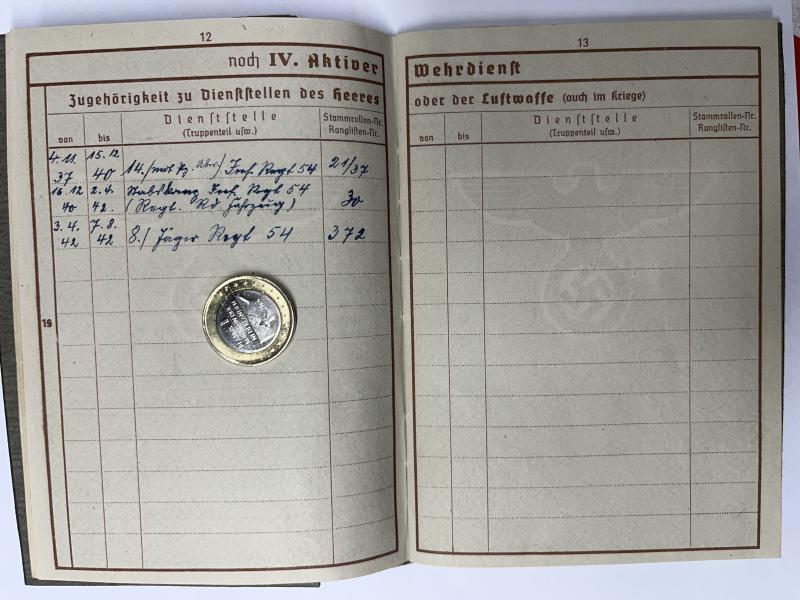 12
noch IV. Aktiver
Zugehörigkeit zu Dienststellen des Heeres
von
bis
Dienststelle
(Truppenteil usw.)
Stammrollen-Nr.
Ranglisten-Nr.
4.11. 15.12
37 40 14./ Inf. Regt 54 21/37
16.12 2.4. Stabskomp Inf. Rgt 54
40 42. (Regt. Rd. ) 30
3.4. 7.8.
42 42 8./ Jäger Regt 54 372
19
13
Wehrdienst
oder der Luftwaffe (auch im Kriege)
von
bis
Dienststelle
(Truppenteil usw.)
Stammrollen-Nr.
Ranglisten-Nr.